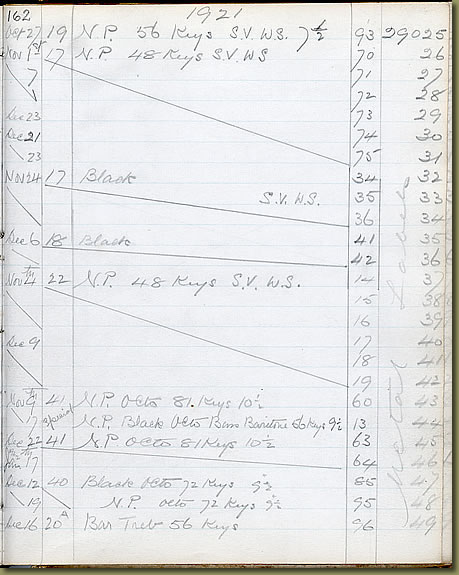 162 1921
Oct 27 19 N.P. 56 Keys S.V. W.S. 7½ 93 29025
Nov 1st 17 N.P. 48 Keys S.V. W.S 70 26
7 71 27
72 28
Dec 23 73 29
Dec 21 74 30
23 75 31
Nov 24 17 Black 34 32
S.V. W.S. 35 33
36 34
Dec 6 18 Black 41 35
42 36
Nov 4th 22 N.P. 48 Keys S.V. W.S. 14 37
15 38
16 39
Dec 9 17 40
18 41
19 42
Nov 9th 41 N.P. Octo 81 Keys 10½ 60 43
17 special N.P. Black Octo Bass Baritone 56 Keys 9½ 13 44
Dec 22 41 N.P. Octo 81 Keys 10½ 63 45
17 64 46
Dec 12 40 Black Octo 72 Keys 9½ 85 47
19 N.P. Octo 72 Keys 9½ 95 48
Dec 16 20A Bar Treb 56 Keys 96 49
Metal Labels